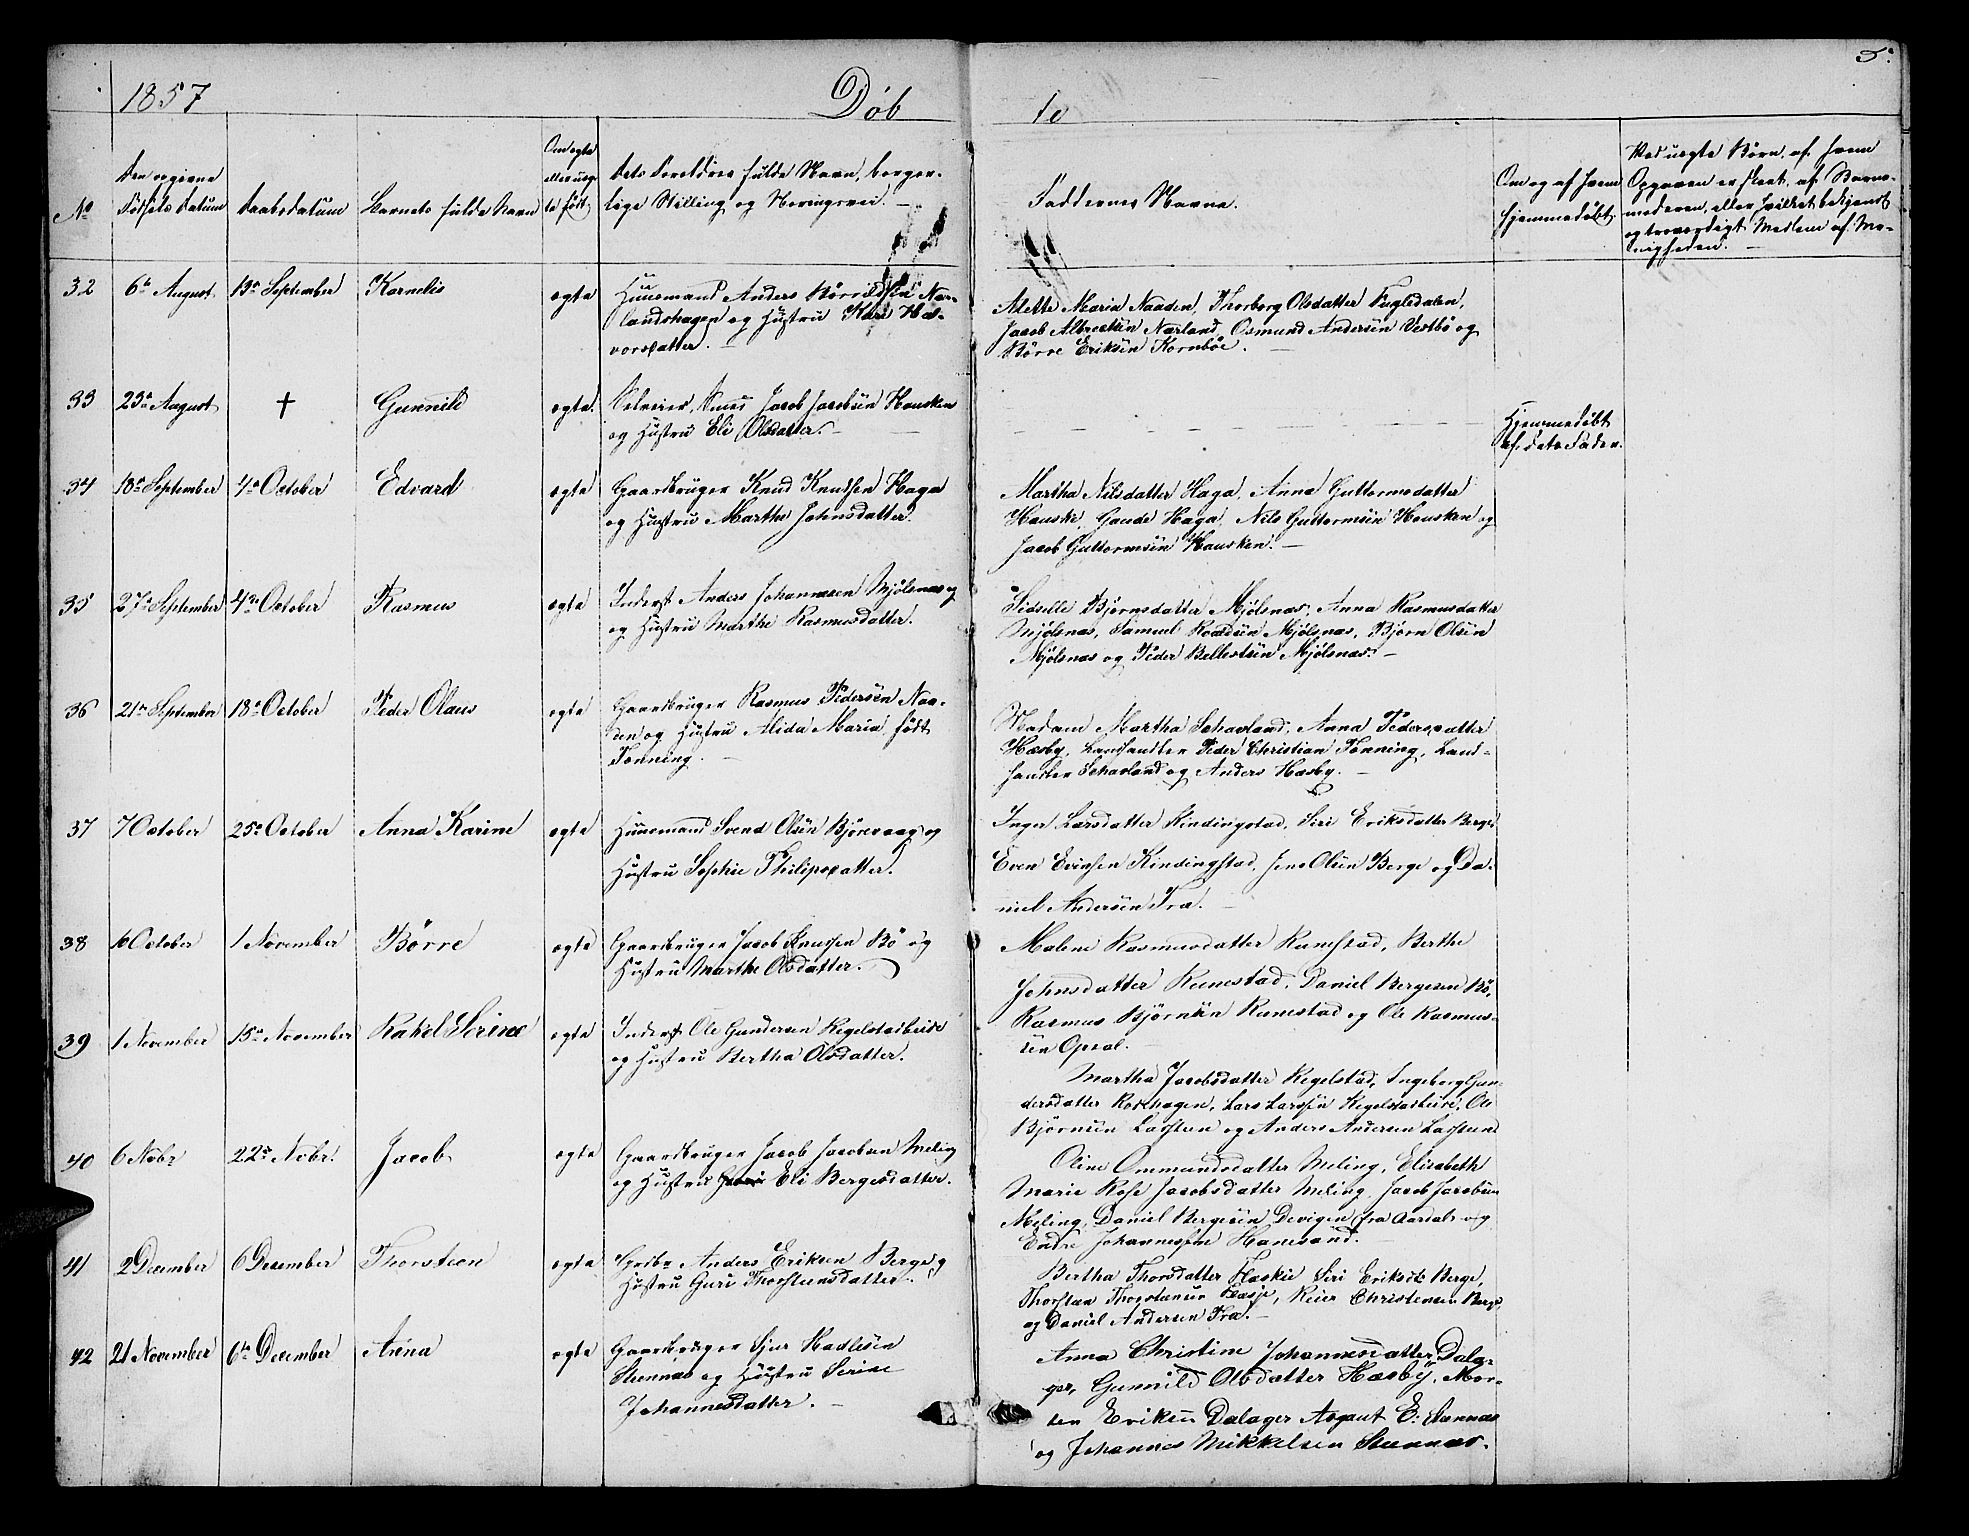 5.
1857
Døbte
No
Den opgivne
Fødsels Datum
Daabsdatum
Barnets fulde Navn
Om ægte
eller uæg-
te født
Dets Forældres fulde Navn, borger-
lige Stilling og Næringsvei. —
Faddernes Navne.
Om og af hvem
hjemmedøbt
Ved uægte Børn, af hvem
Opgaven er skeet, af Barne-
moderen, eller hvilket bekjendt
og troværdigt Medlem af Me-
nigheden. —
32
6te August
13de September
Kornelis
ægte
Huusmand Anders Børrildsen Nær-
landshagen og Hustru Kari Ha-
vorsdatter. —
Mette Maria Naaden, Thorborg Olsdatter Fugledalen,
Jacob Albrectsen Nærland, Osmund Andersen Vestbø og
Børre Eriksen Kornbøe. —
33
23de August
†
Gunnild
ægte.
Selveier, Jacob Jacobsen Hausken
og Hustru Eli Olsdatter. —
Hjemmedøbt
af dets Fader.
34
18de September
4de October
Edvard
ægte
Gaardbruger Knud Knudsen Haga
og Hustru Marthe Johnsdatter.
Martha Nilsdatter Haga, Anna Guttormsdatter
Hauske, Gaude Haga, Nils Guttormsen Hausken og
Jacob Guttormsen Hausken. —
35
27de September
4de October
Rasmus
ægte
Inderst Anders Johannesen Mjølsnæs og
og Hustru Marthe Rasmusdatter.
Sidselle Bjørnsdatter Mjølsnæs, Anna Rasmusdatter
Mjølsnæs, Samuel Roaldsen Mjølsnæs, Bjørn Olsen
Mjølsnæs og Peder Ballestsen Mjølsnæs. —
36
21de September
18de October
Peder Olaus
ægte
Gaardbruger Rasmus Pedersen Naa-
den og Hustru Alida Maria, født
Tønning. —
Madam Martha Schavland, Anna Pedersdatter
Hæsby, Landhandler Peder Christian Tønning, Land-
handler Schavland og Anders Hæsby. —
37
7 October
25de October
Anna Karine
ægte
Huusmand Svend Olsen Bjørevaag og
Hustru Sophie Philipsdatter.
Inger Larsdatter Kindingstad, Siri Eriksdatter Berge
Even Evensen Kindingstad, Jens Olsen Berge og Da-
niel Andersen Træ. —
38
16 October
1 November
Børre
ægte
Gaardbruger Jacob Knudsen Bø og
Hustru Marthe Olsdatter. —
Malene Rasmusdatter Runestad, Berthe
Johnsdatter Runestad, Daniel Bergesen Bø,
Rasmus Bjørnsen Runestad og Ole Rasmus-
sen Opsal. —
39
1 November
15de November
Rakel Serine
ægte
Inderst Ole Gundersen Regelstadbeide
og Hustru Bertha Olsdatter.
Martha Jacobsdatter Regelstad, Ingeborg Gun-
dersdatter Rosshagen, Lars Larssen Regelstadbeide, Ole
Bjørnsen Lastein og Anders Andersen Lastein
40
6 Novbr
22de Novbr.
Jacob
ægte
Gaardbruger Jacob Jacobsen Meling
og Hustru Eli Bergesdatter.
Oline Ommundsdatter Meling, Elisabeth
Marie Rose Jacobsdatter Meling, Jacob Jacobsen
Meling, Daniel Bergesen Devigen fra Aardal og
Endre Johannessen Hanesand. —
41
2 December
6 December
Thorsteen
ægte
Gbrbr Anders Eriksen Berge og
Hustru Guri Thorsteensdatter.
Bertha Thorsdatter Haskie Siri Eriksdt: Berge,
Thorstein Thorstensen Hasje, Reier Christensen Berge
og Daniel Andersen Træ. —
42
21 November
6te December
Anna
ægte
Gaardbruger Sjur Kadlesen
Steennæs og Hustru Serine
Johannesdatter. —
Anna Christine Johannesdatter Dala-
ger, Gunnild Olsdatter Hæsby, Mor-
ten Eriksen Dalager Asgaut E: Steennæs
og Johannes Mikkelsen Steennæs.